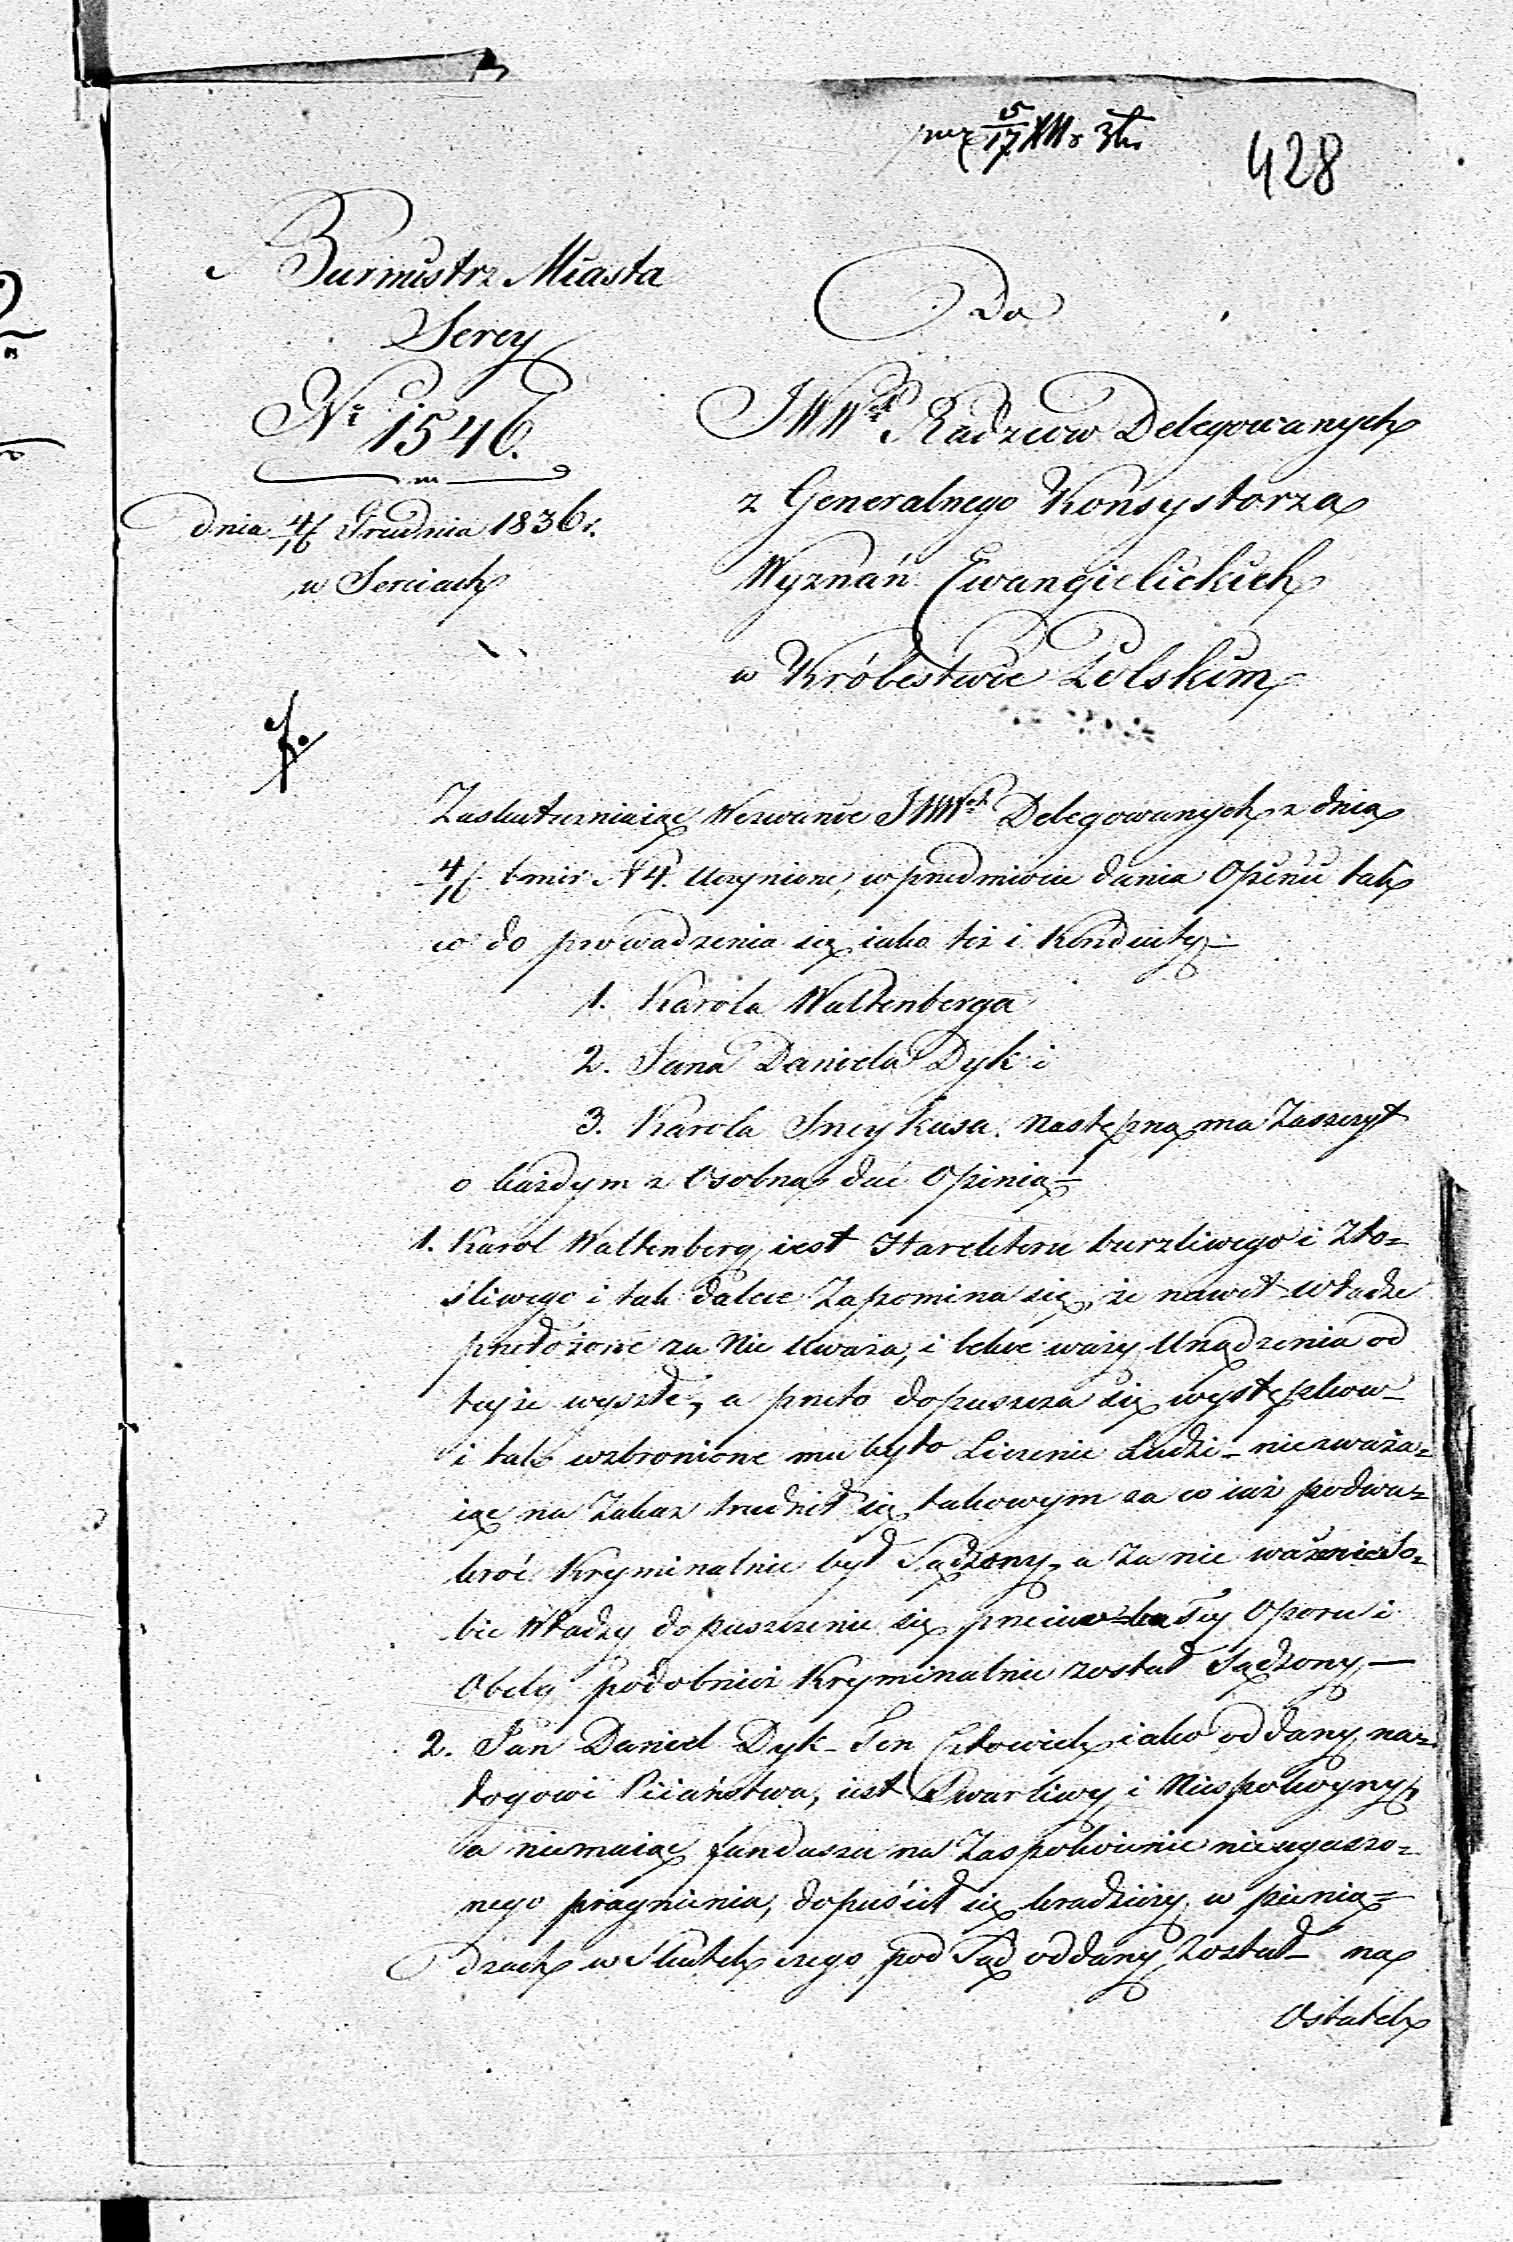 428
Burmistrz Miasta
Serey
Nr 1546.
dnia 4/16 Grudnia 1836 r.
w Sereiach
Do
JWWch Radzców Delegowanych
z Generalnego Konsystorza
Wyznań Ewangielickich
w Królestwie Polskim
Zaskuteczniaiąc Wezwanie JWWch Delegowanych z dnia
4/16 t. mca N 4. uczynione, w przedmiocie dania Opinii tak
co do prowadzenia się iako też i Konduity
1. Karola Waltenberga
2. Jana Daniela Dyk i
3. Karola Sneykusa. następną ma Zaszczyt
o każdym z Osobna dać Opinią
1. Karol Waltenberg iest Harekteru burzliwego i Zło=
śliwego i tak dalece Zapomina się, że nawet władze
przełożone za Nic uważa, i lekce waży Urządzenia od
teyże wyszłe, a przeto dopuszcza się występków
i tak wzbronione mu było Liczenie Ludzi - niezważa=
iąc na Zakaz trudnił się takowym za co iuż podwa=
kroć Kryminalnie był Sądzony, a za nie ważenie So=
bie Władzy dopuszczenie się przeciwko Tey Oporu i
Obelg podobnież Kryminalnie został Sądzony, —
2. Jan Daniel Dyk - Ten Człowiek iako oddany na=
łogowi Piiaństwa, iest Swarliwy i Niespokoyny,
a niemaiąc funduszu na Zaspokoienie nieugaszo=
nego pragnienia, dopuścił się kradzieży w pienią=
dzach w Skutek czego pod Sąd oddany został - na
Ostatek